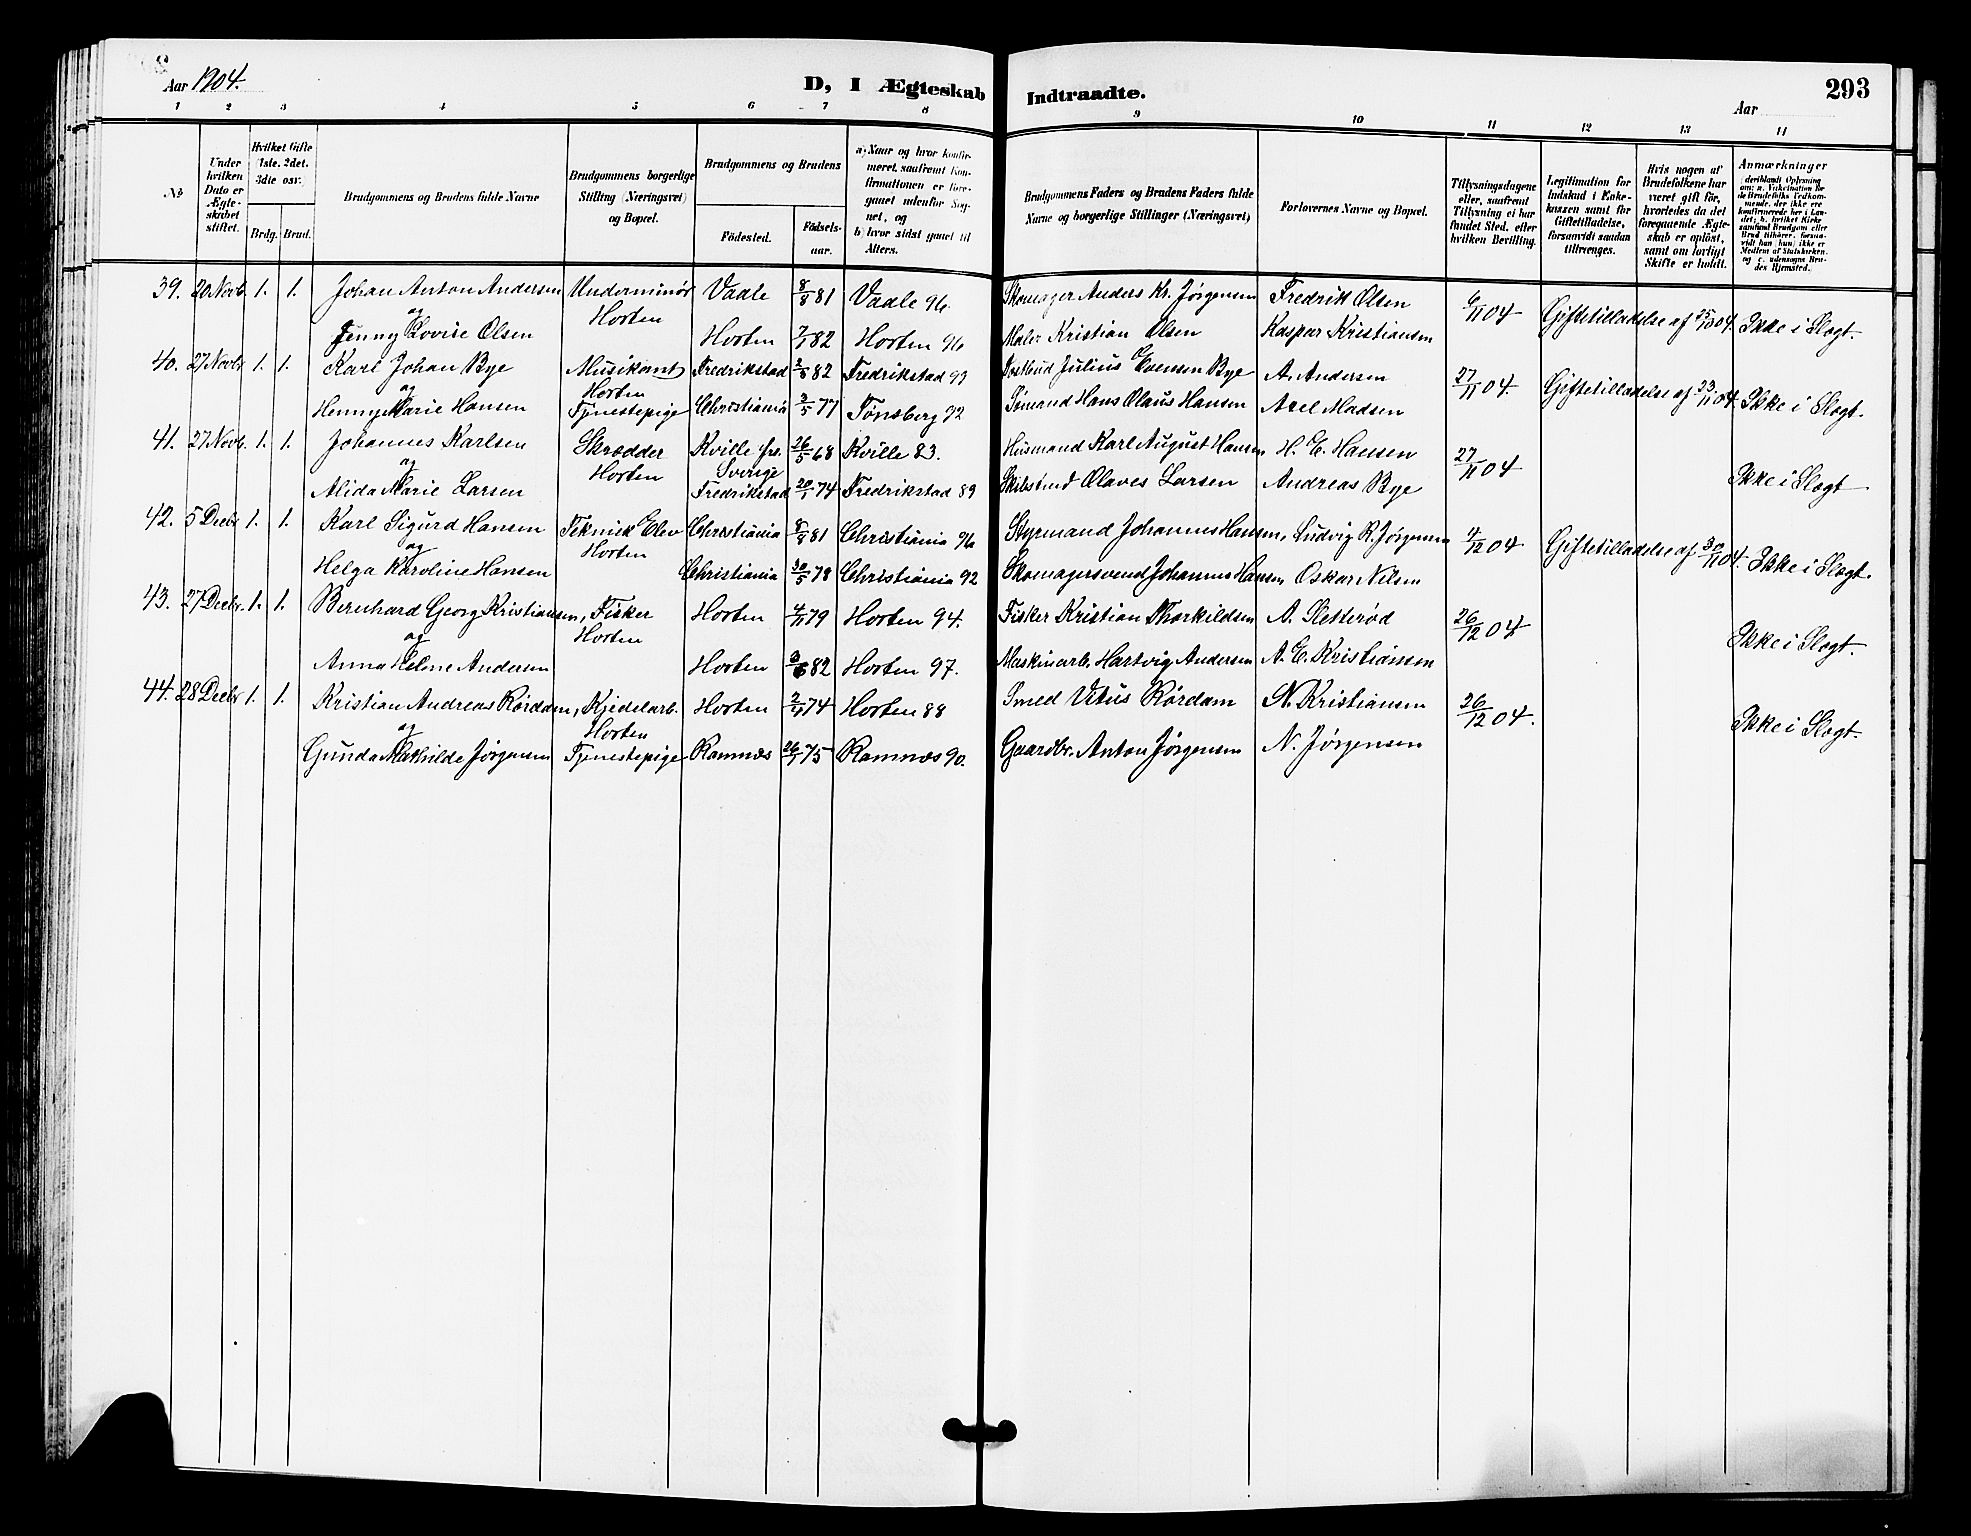 Aar 1904.
D, I Ægteskab Indtraadte.
293
Aar
1 2 3 4 5 6 7 8 9 10 11 12 13 14
№
Under hvilken Dato er Ægteskabet stiftet.
Hvilket Gifte (1ste. 2det. 3die osv.)
Brdg. Brud.
Brudgommens og Brudens fulde Navne
Brudgommens borgerlige Stilling (Næringsvei) og Bopæl.
Brudgommens og Brudens
Fødested.
Fødselsaar.
a) Naar og hvor konfirmeret, saafremt Konfirmationen er foregaaet udenfor Sognet, og
b) hvor sidst gaaet til Alters.
Brudgommens Faders og Brudens Faders fulde Navne og borgerlige Stillinger (Næringsvei)
Forlovernes Navne og Bopæl.
Tillysningsdagene eller, saafremt Tillysning ei har fundet Sted, efter hvilken Bevilling.
Legitimation for Indskud i Enkekassen samt for Giftetilladelse, forsaavidt saadan tiltrænges.
Hvis nogen af Brudefolkene har været gift før, hvorledes da det foregaaende Ægteskab er opløst, samt om lovligt Skifte er holdt.
Anmærkninger
39. 20 Novb. 1. 1. Johan Anton Andersen Underminør Vaale 8/8 81 Vaale 96. Skomager Anders Kr. Jørgensen Fredrik Olsen 6/11 04 Giftetilladelse af 25/10 04. Ikke i Slægt.
og Horten
Jenny Lovise Olsen Horten 7/1 82 Horten 96 Maler Kristian Olsen Kaspar Kristiansen
40. 27 Novbr 1. 1. Karl Johan Bye Musikant Fredrikstad 2/8 82 Fredrikstad 97 Julius Evensen Bye A. Andersen 27/11 04. Giftetilladelse af 23/11 04. Ikke i Slægt.
og Horten
Henny Marie Hansen Tjenestepige Christiania 3/5 77 Tønsberg 92 Sømand Hans Olaus Hansen Axel Madsen
41. 27 Novb. 1. 1. Johannes Karlsen Skrædder Kville ps. 26/5 68 Kville 83. Husmand Karl August Hansen H. E. Hansen 27/11 04 Ikke i Slægt
og Horten Sverige
Alida Marie Larsen Fredrikstad 20/1 74 Fredrikstad 89 Olaves Larsen Andreas Bye
42. 5 Decbr 1. 1. Karl Sigurd Hansen Teknisk Elev Christiania 8/8 81 Christiania 96 Styrmand Johannes Hansen, Ludvig R. Jørgensen 4/12 04 Giftetilladelse af 30/11 04. Ikke i Slægt.
og Horten
Helga Karoline Hansen Christiania 30/5 78 Christiania 92 Skomagersvend Johannes Hansen, Oskar Nilsen
43. 27 Decbr. 1. 1. Bernhard Georg Kristiansen, Fisker Horten 4/11 79 Horten 94. Fisker Kristian Thorkildsen A. Sletterød 26/12 04. Ikke i Slægt.
og Horten
Anna Helene Andersen Horten 3/6 82 Horten 97. Maskinarb. Hartvig Andersen A. E. Kristiansen
44. 28 Decbr 1. 1. Kristian Andreas Rørdam, Kjedelarb. Horten 2/11 74 Horten 88 Smed Vitus Rørdam N. Kristiansen 26/12 04. Ikke i Slægt.
og Horten
Gunda Mathilde Jørgensen Tjenestepige Ramnæs 26/1 75 Ramnæs 90. Gaardbr. Anton Jørgensen N. Jørgensen